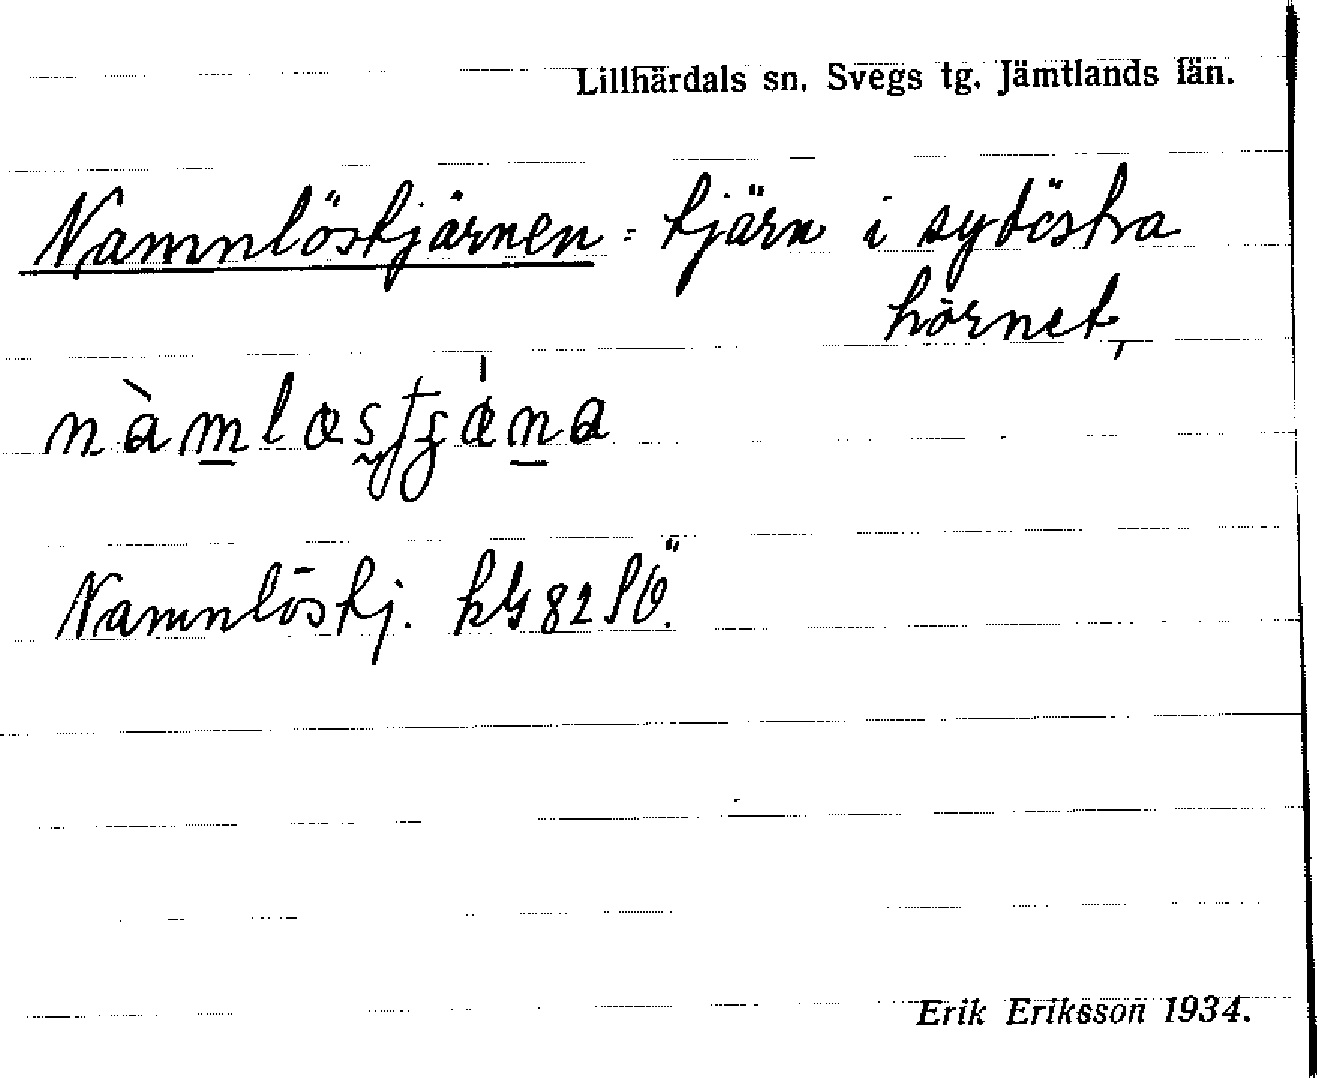 Lillhärdals sn. Svegs tg. Jämtlands län.
Namnlöstjärnen = tjärn i sydöstra
hörnet,
Namnlöstj. kG 82 SÖ.
Erik Eriksson 1934.